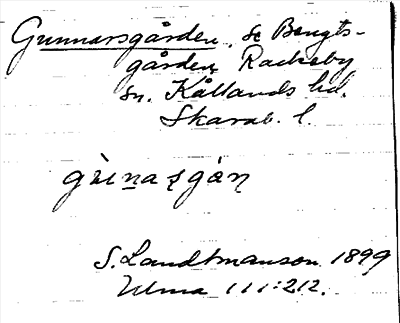 Gunnarsgården, se Bengts-
gården, Rackeby
sn. Kållands hd.
Skarab. l.
gu̇nasgȧn
S. Landtmanson 1899
Ulma 111:212.